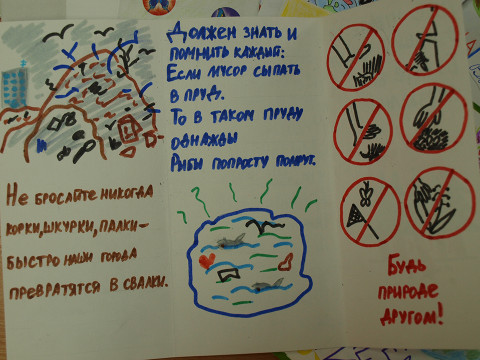 Не бросайте никогда
корки, шкурки, палки –
быстро наши города
превратятся в свалки.
Должен знать и
помнить каждый:
Если мусор сыпать
в пруд,
То в таком пруду
однажды
Рыбы попросту помрут.
Будь
природе
другом!